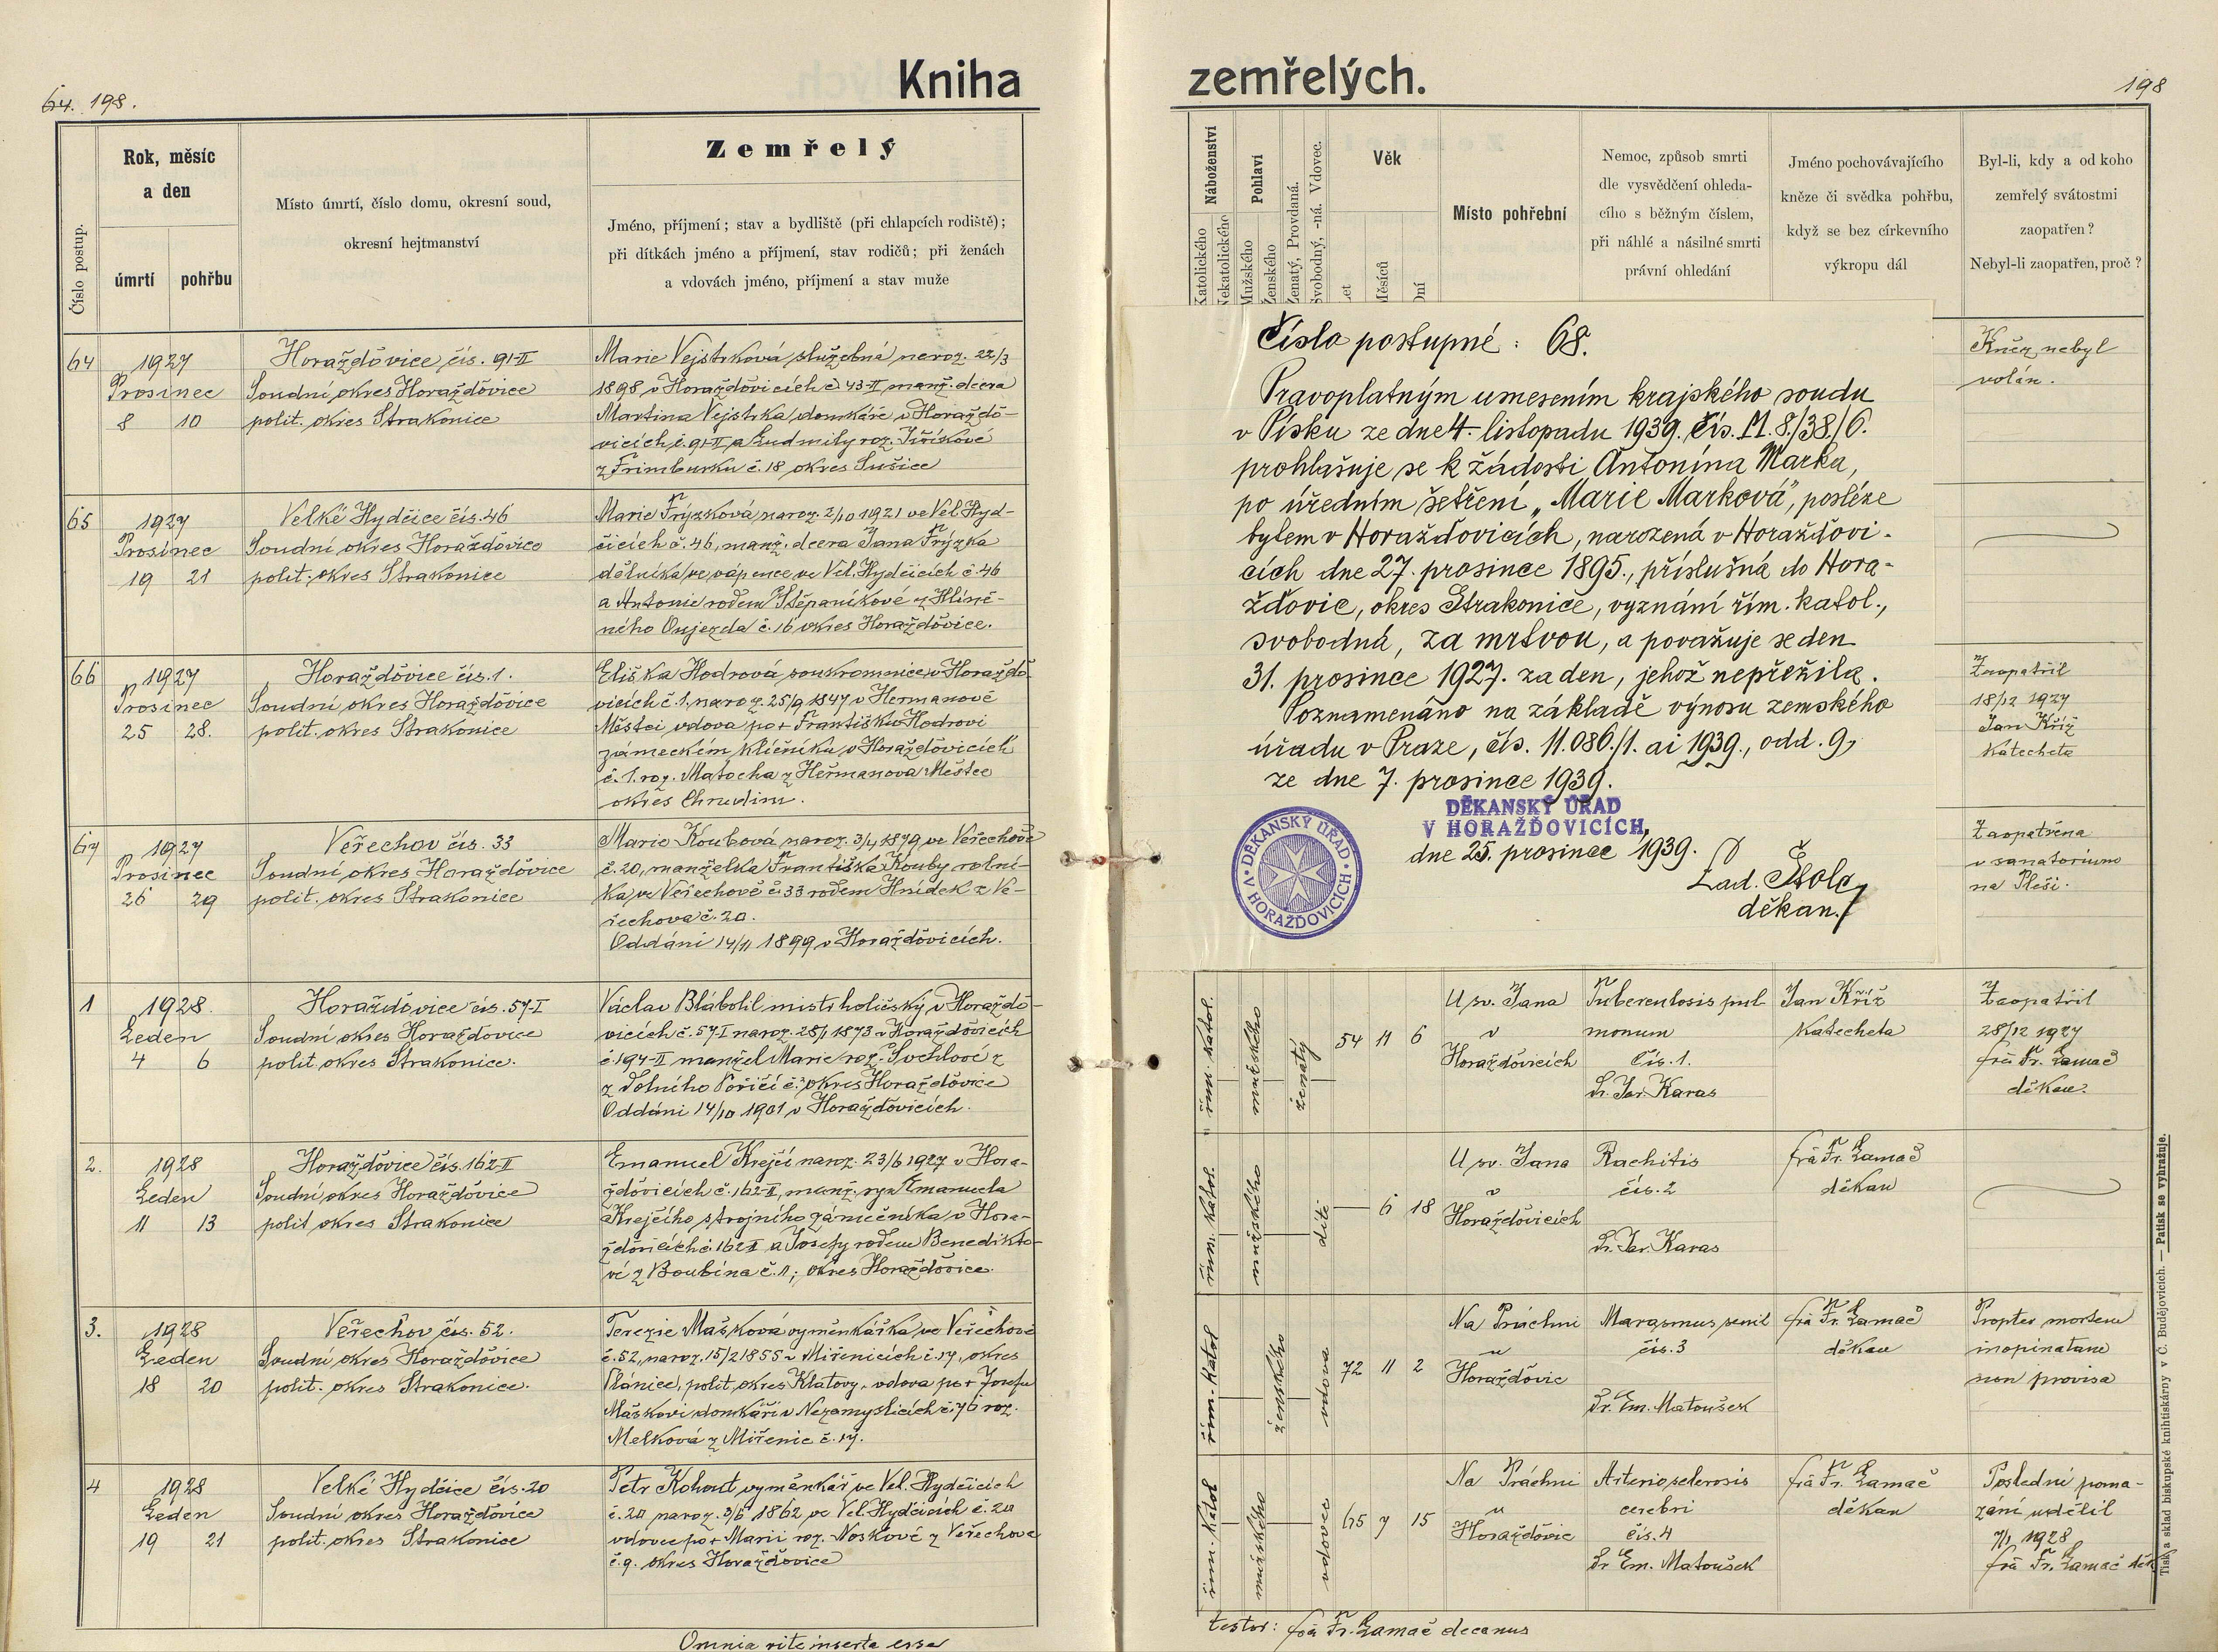 64. 198.
Kniha
Číslo postup.
Rok, měsíc
a den
úmrtí
pohřbu
Místo úmrtí, číslo domu, okresní soud,
okresní hejtmanství
Zemřelý
Jméno, příjmení; stav a bydliště (při chlapcích rodiště);
při dítkách jméno a příjmení, stav rodičů; při ženách
a vdovách jméno, příjmení a stav muže
64
1927
Prosinec
8 10
Horažďovice čís. 91-II
Soudní okres Horažďovice
polit. okres Strakonice
Marie Vejstrková služebná naroz. 22/3
1898 v Horažďovicích č 43-II manž. dcera
Martina Vejstrka domkáře v Horaždo-
vicích č. 91-II a Ludmily roz. Jiříkové
z Frimburku č. 18 okres Sušice
65
1927
Prosinec
19 21
Velké Hydčice čís. 46
Soudní okres Horažďovice
polit. okres Strakonice
Marie Frýzková naroz. 2/10 1921 ve Vel. Hyd-
čicích č. 46, manž. dcera Jana Frýzka
dělníka ve vápence ve Vel. Hydčicích č. 46
a Antonie rodem Štěpaníkové z Hlině-
ného Oujezda č. 16 okres Horažďovice.
66
1927
Prosinec
25 28.
Horažďovice čís. 1.
Soudní okres Horažďovice
polit. okres Strakonice
Eliška Hodrová soukromnice v Horaždo-
vicích č. 1, naroz. 25/9 1847 v Heřmanově
Městci vdova po + Františku Hodrovi
zámeckém klíčníku v Horažďovicích
č. 1. roz. Matocha z Heřmanova Městce
okres Chrudim.
67
1927
Prosinec
26 29
Veřechov čís. 33
Soudní okres Horažďovice
polit. okres Strakonice
Marie Koubová naroz. 3/4 1879 ve Veřechově
č. 20, manželka Františka Kouby rolní-
ka ve Veřechově č. 33 rodem Hnídek z Ve-
řechova č. 20.
Oddáni 14/11 1899 v Horažďovicích.
1
1928.
Leden
4 6
Horažďovice čís. 57-I
Soudní okres Horažďovice
polit. okres Strakonice.
Václav Blábolil mistr holičský v Horaždo-
vicích č. 57-I naroz. 28/1 1873 v Horažďovicích
č. 197-II manžel Marie roz. z
z Dolního Poříčí č. okres Horažďovice
Oddáni 14/10 1901 v Horažďovicích.
2.
1928
Leden
11 13
Horažďovice čís. 162-II
Soudní okres Horažďovice
polit okres Strakonice
Emanuel Krejčí naroz. 23/6 1927 v Hora-
žďovicích č. 162-II, manž. syn Emanuela
Krejčího strojního zámečníka v Hora-
žďovicích č. 162 II a Josefy rodem Benedikto-
vé z Boubína č. 1; okres Horažďovice.
3.
1928
Leden
18 20
Veřechov čís. 52.
Soudní okres Horažďovice
polit. okres Strakonice.
Terezie Mašková výměnkářka ve Veřechově
č. 52, naroz. 15/2 1855 v Miřenicích č. 17, okres
Plánice, polit. okres Klatovy, vdova po + Josefu
Maškovi domkáři v Nezamyslicích č. 76 roz.
Melková z Miřenic č. 17.
4
1928
Leden
19 21
Velké Hydčice čís. 20
Soudní okres Horažďovice
polit. okres Strakonice
Petr Kohout výměnkář ve Vel. Hydčicích
č. 20 naroz. 3/6 1862 ve Vel. Hydčicích č. 20
vdovec po + Marii roz. Noskové z Veřechova
č. 9. okres Horažďovice
Omnia rite inserta esse
zemřelých.
198
Náboženství
Katolického
Nekatolického
Pohlaví
Mužského
Ženského
Ženatý, Provdaná.
Svobodný, -ná. Vdovec.
Věk
Let
Měsíců
Dní
Místo pohřební
Nemoc, způsob smrti
dle vysvědčení ohleda-
cího s běžným číslem,
při náhlé a násilné smrti
právní ohledání
Jméno pochovávajícího
kněze či svědka pohřbu,
když se bez církevního
výkropu dál
Byl-li, kdy a od koho
zemřelý svátostmi
zaopatřen?
Nebyl-li zaopatřen, proč?
Číslo postupné: 68.
Pravoplatným usnesením krajského soudu
v Písku ze dne 4. listopadu 1939. Čís. M. 8./38./6.
prohlašuje se k žádosti Antonína Marka,
po úředním šetření „Marie Marková", posléze
bytem v Horažďovicích, narozená v Horažďovi-
cích dne 27. prosince 1895., příslušná do Hora-
žďovic, okres Strakonice, vyznání řím. katol.,
svobodná, za mrtvou, a považuje se den
31. prosince 1927. za den, jehož nepřežila.
Poznamenáno na základě výnosu zemského
úřadu v Praze, čís. 11.086./1. ai 1939., odd. 9,
ze dne 7. prosince 1939.
DĚKANSKÝ ÚŘAD
V HORAŽĎOVICÍCH,
dne 25. prosince 1939.
Lad.
děkan.
DĚKANSKÝ ÚŘAD V HORAŽĎOVICÍCH
Kněz nebyl
volán.
Zaopatřil
18/12 1927
Jan Kříž
katecheta
Zaopatřena
v sanatorium
na Pleši.
řím. katol.
mužského
ženatý
54 11 6
U sv. Jana
v
Horažďovicích
Tuberculosis pul-
monum
čís. 1.
Dr. Jar. Karas
Jan Kříž
Katecheta
Zaopatřil
28/12 1927
frà Fr. Lamač
děkan.
řím. katol.
mužského
dítě
— 6 18
U sv. Jana
v
Horažďovicích
Rachitis
čís. 2
Dr. Jar. Karas
frà Fr. Lamač
děkan
řím. katol
ženského
vdova
72 11 2
Na Práchni
u
Horažďovic
Marasmus senil
čís. 3
Dr. Em. Matoušek
frà Fr. Lamač
děkan
Propter mortem
inopinatam
non provisa
řím. katol
mužského
vdovec
65 7 15
Na Práchni
u
Horažďovic
Arteriosclerosis
cerebri
čís. 4
Dr Em. Matoušek
frà Fr. Lamač
děkan
Poslední poma-
zání udělil
7/1 1928
frà Fr. Lamač děk
testor: frà Fr. Lamač decanus
Tisk a sklad biskupské knihtiskárny v Č. Budějovicích. — Patisk se vyhražuje.